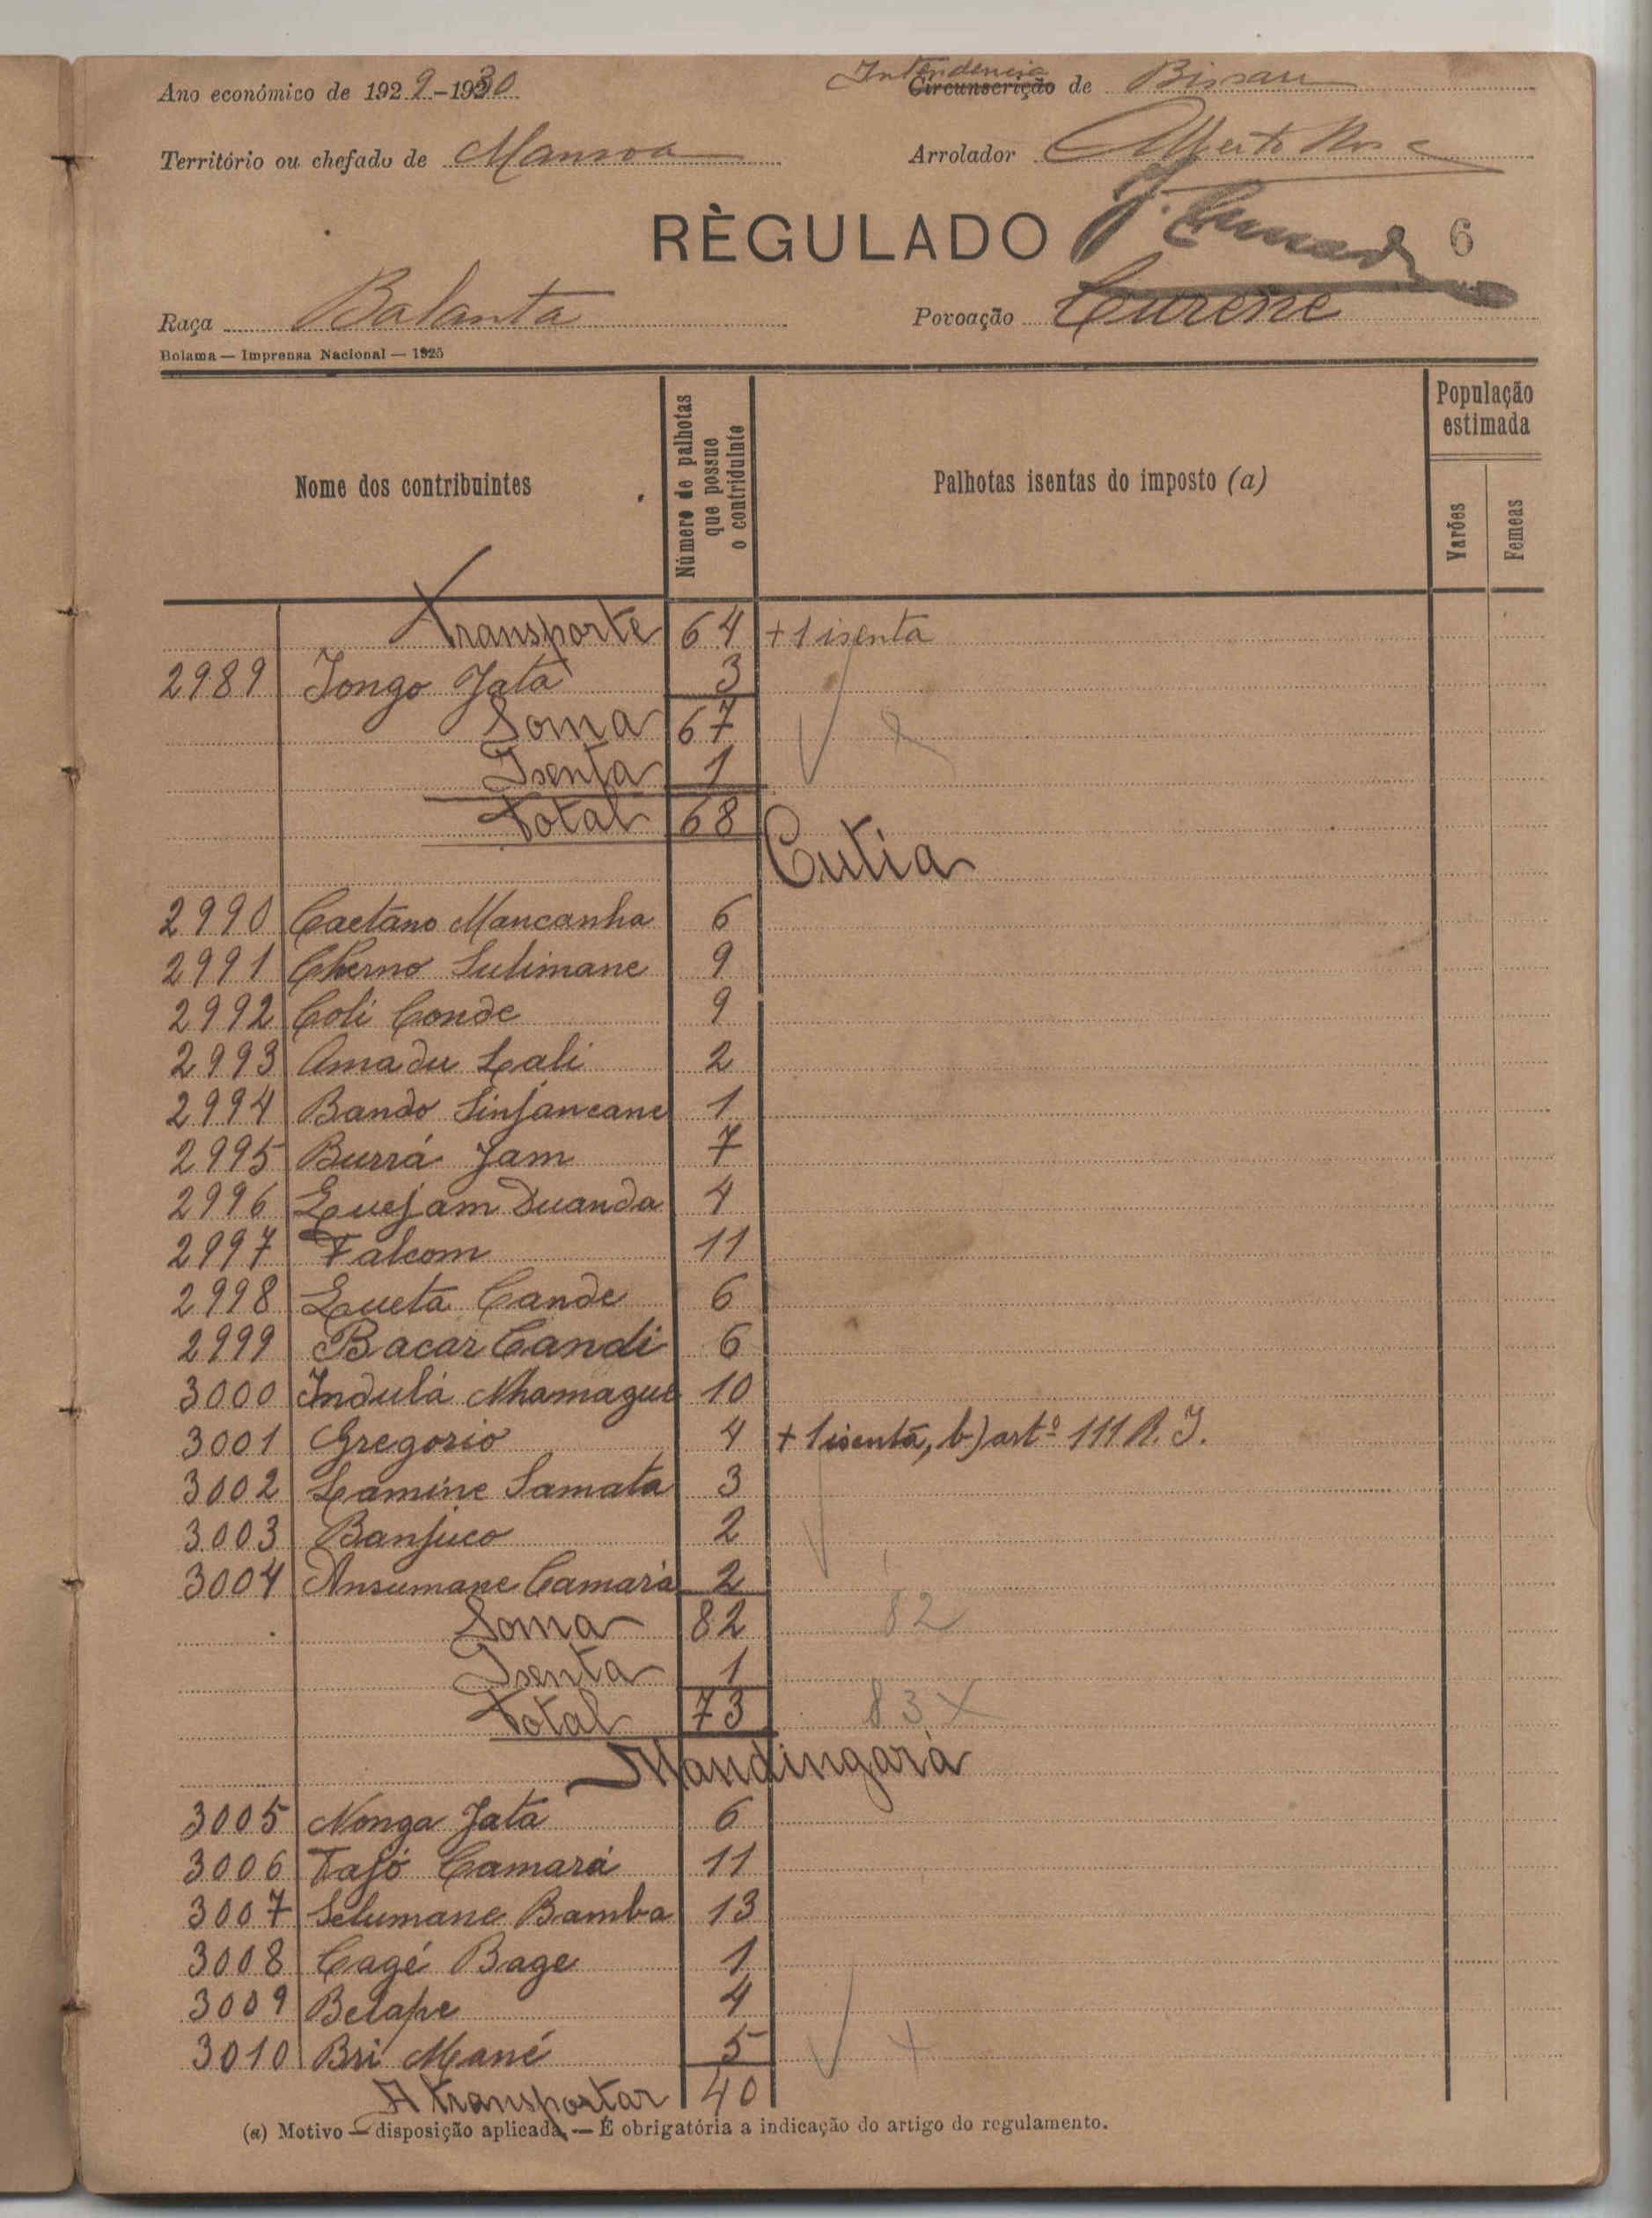 Ano económico de 1929-1930
Intendencia
Circunscrição de Bissau
Território ou chefado de Mansoa
Arrolador Alberto
RÈGULADO 6
Raça Balanta
Povoação Curene
Bolama — Imprensa Nacional — 1925
Nome dos contribuintes
Número de palhotas que possue o contriduinte
Palhotas isentas do imposto (a)
População estimada
Varões
Femeas
Transporte 64 + 1 isenta
2989 Jongo Jatá 3
Soma 67
Isenta 1
Total 68
Cutia
2990 Caetano Mancanha 6
2991 Cherno Sulimane 9
2992 Coli Conde 9
2993 Amadu Lali 2
2994 Bando Sinjancane 1
2995 Burrá Jam 7
2996 Quejam Duanda 4
2997 Falcom 11
2998 Queta Cande 6
2999 Bacar Candi 6
3000 Indulá Nhamague 10
3001 Gregorio 4 + 1 isenta, b) artº 111 R. I.
3002 Lamine Samata 3
3003 Banjuco 2
3004 Ansumane Camará 2
Soma 82 82
Isenta 1
Total 73 83 X
Mandingará
3005 Nonga Jatá 6
3006 Tajó Camará 11
3007 Selumane Bamba 13
3008 Cagé Bage 1
3009 Belape 4
3010 Bri Mané 5
A transportar 40
(a) Motivo — disposição aplicada, — É obrigatória a indicação do artigo do regulamento.